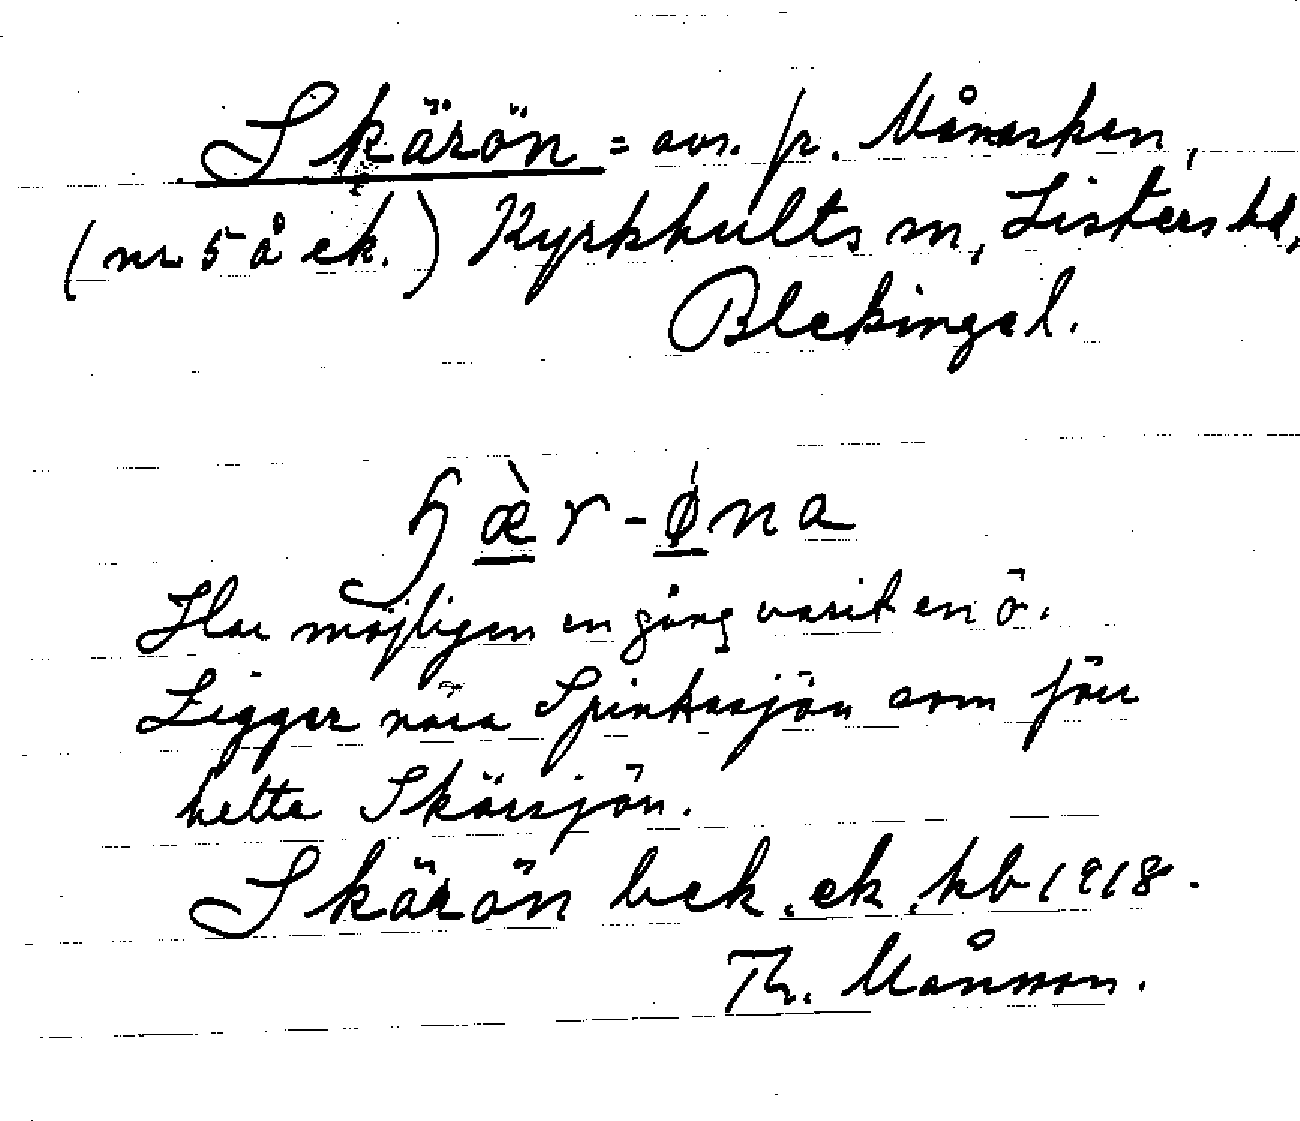 Skärön = avs. fr. Månaskan,
(nr 5 å ek.) Kyrkhults sn, Listers hd,
Blekinge l.
ɧæ̀r-ǿna
Har möjligen en gång varit en ö.
Ligger nära Spinkasjön som förr
hette Skärsjön.
Skärön bek. ek. kb 1918.
Th. Månsson.